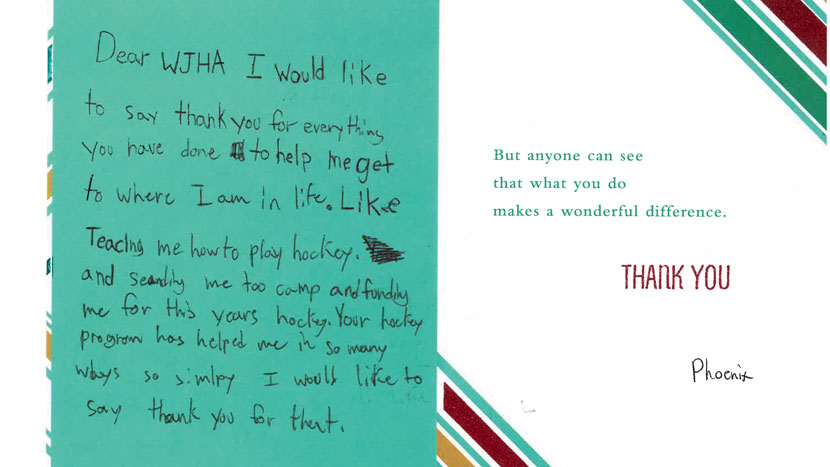 Dear WJHA I would like
to say thank you for everything
you have done to help me get
to where I am in life. Like
Teacing me how to play hockey.
and seanding me too camp and funding
me for this years hockey. Your hockey
program has helped me in so many
ways so simlpy I would like to
say thank you for that.
But anyone can see
that what you do
makes a wonderful difference.
THANK YOU
Phoenix